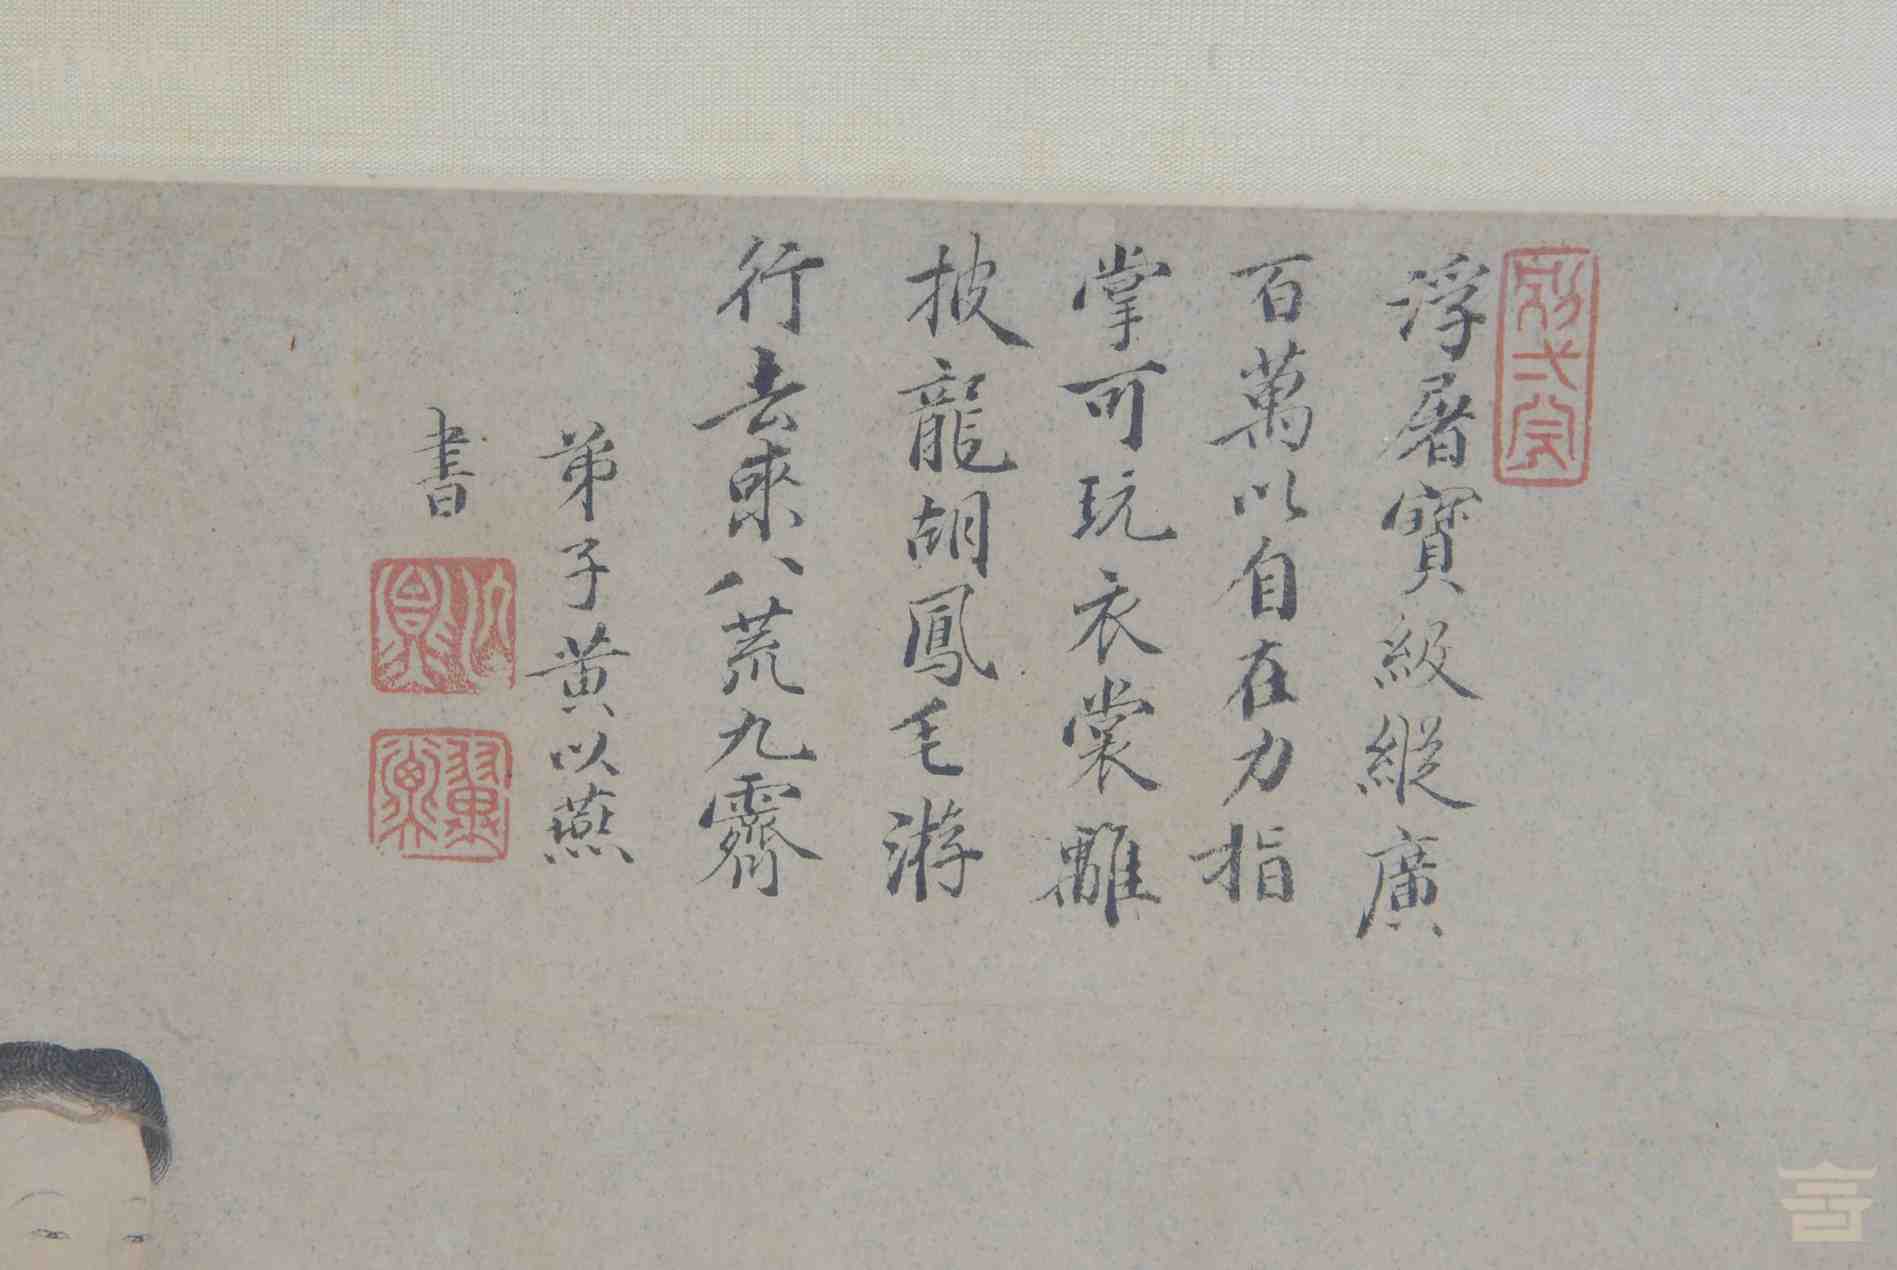 浮屠寶級縱廣
百萬以自在力指
掌可玩衣裳離
披龍胡鳳毛游
行去來八荒九霽
弟子黃以燕
書